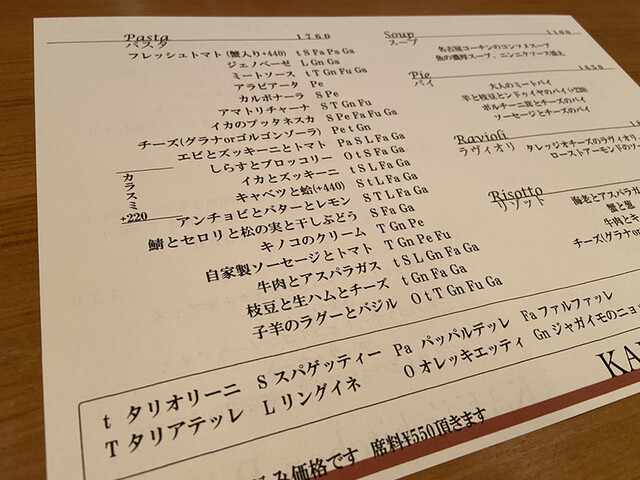 Pasta 1760
パスタ
フレッシュトマト(蟹入り+440) t S Fa Pa Ga
ジェノベーゼ L Gn Ga
ミートソース t T Gn Fu Ga
アラビアータ Pe
カルボナーラ S Pe
アマトリチャーナ S T Gn Fu
イカのプッタネスカ S Pe Fa Fu Ga
チーズ(グラナorゴルゴンゾーラ) Pe t Gn
エビとズッキーニとトマト Pa S L Fa Ga
しらすとブロッコリー O t S Fa Ga
カラスミ +220
イカとズッキーニ t S L Fa Ga
キャベツと蛤(+440) S t L Fa Ga
アンチョビとバターとレモン S T L Fa Ga
鯖とセロリと松の実と干しぶどう S Fa Ga
キノコのクリーム T Gn Pe
自家製ソーセージとトマト T Gn Pe Fu
牛肉とアスパラガス t S L Gn Fa Ga
枝豆と生ハムとチーズ t Gn Fa Ga
子羊のラグーとバジル O t T Gn Fu Ga
Soup
スープ
名古屋コーチンのコンソメスープ
魚の濃厚スープ、ニンニクソース添え
Pie 1650
パイ
大人のミートパイ
羊と枝豆とンドゥイヤのパイ
ポルチーニ茸とチーズのパイ
ソーセージとチーズのパイ
Ravioli
ラヴィオリ
タレッジオチーズのラヴィオリ
ローストアーモンドのソー
Risotto
リゾット
海老とアスパラガ
蟹と葱
牛肉とキ
チーズ(グラナor
t タリオリーニ S スパゲッティー Pa パッパルデッレ Fa ファルファッレ
T タリアテッレ L リングイネ O オレッキエッティ Gn ジャガイモのニョッ
KA
み価格です 席料¥550頂きます